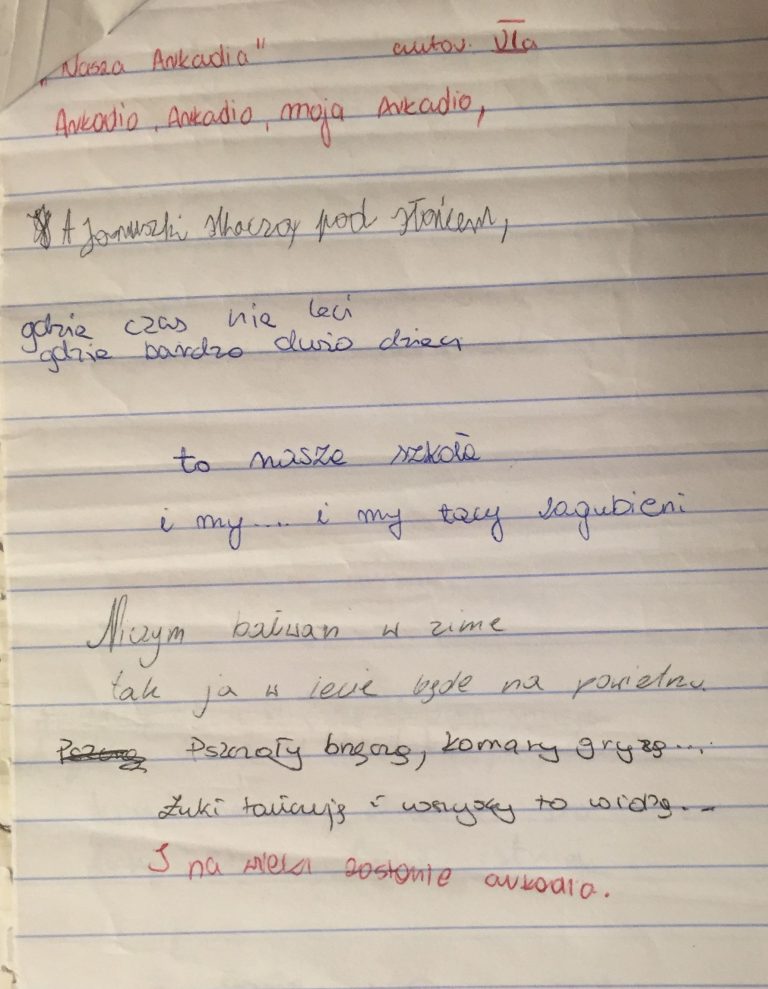 „Nasza Arkadia" autor. VIa
Arkadio, Arkadio, moja Arkadio,
A Januszki skaczą pod słońcem,
gdzie czas nie leci
gdzie bardzo dużo dzieci
to nasza szkoła
i my.... i my tacy zagubieni
Niczym bałwan w zime
tak ja w lecie będe na powietrzu.
Pszczoły brzęczą, komary gryzą...
żuki tańcują i wszyscy to widzą...
I na wieki zostanie arkadia.